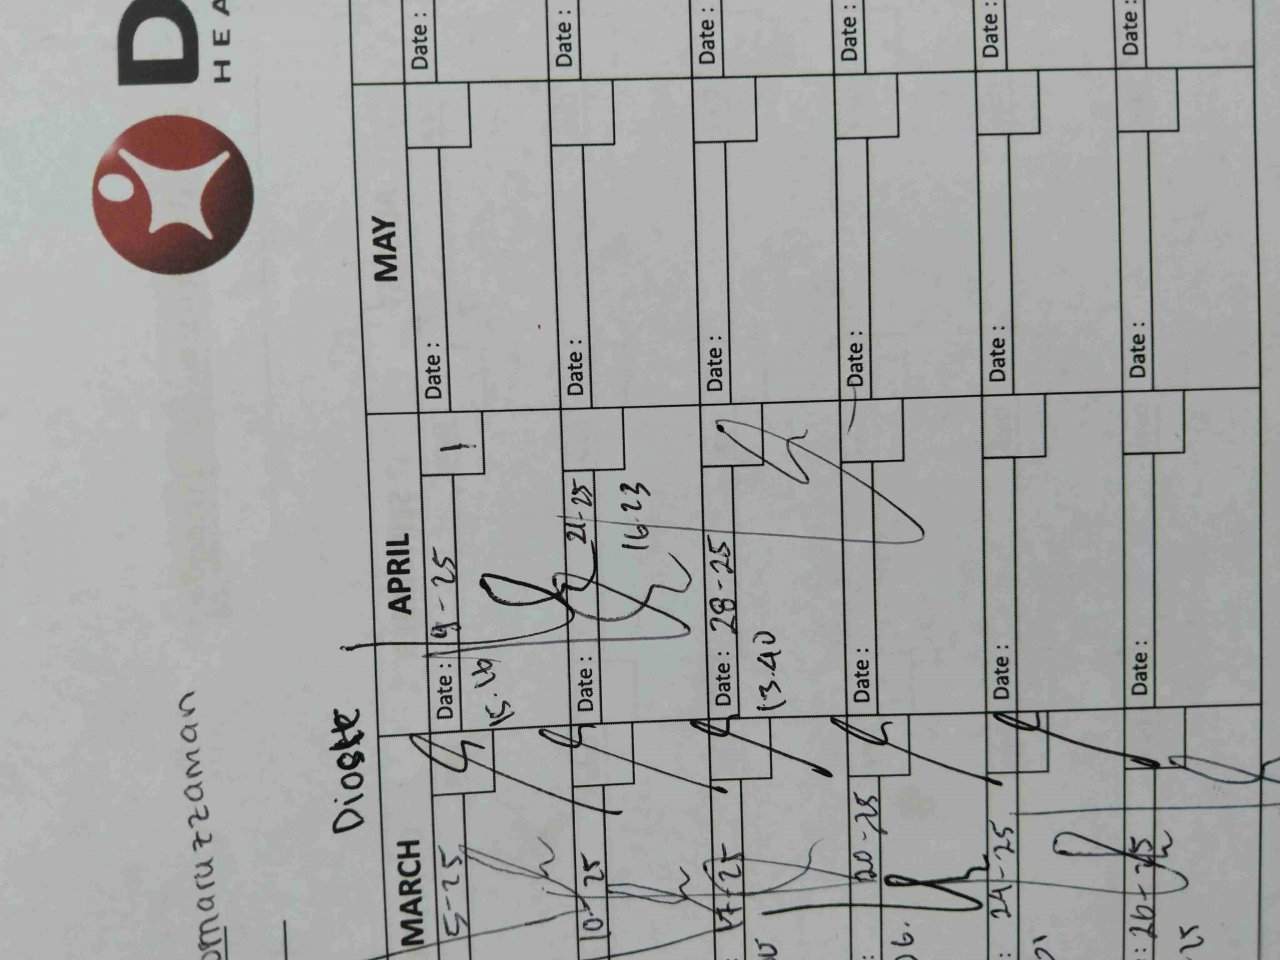 D
HEA
omaruzzaman
Dioste
MARCH APRIL MAY
5-25 Date : 9-25 Date : Date :
15.16
10-25 Date : 21-25 Date : Date :
16.23
17-25 Date : 28-25 Date : Date :
13.40
: 20-25 Date : Date : Date :
06.
: 24-25 Date : Date : Date :
: 26-25 Date : Date : Date :
25